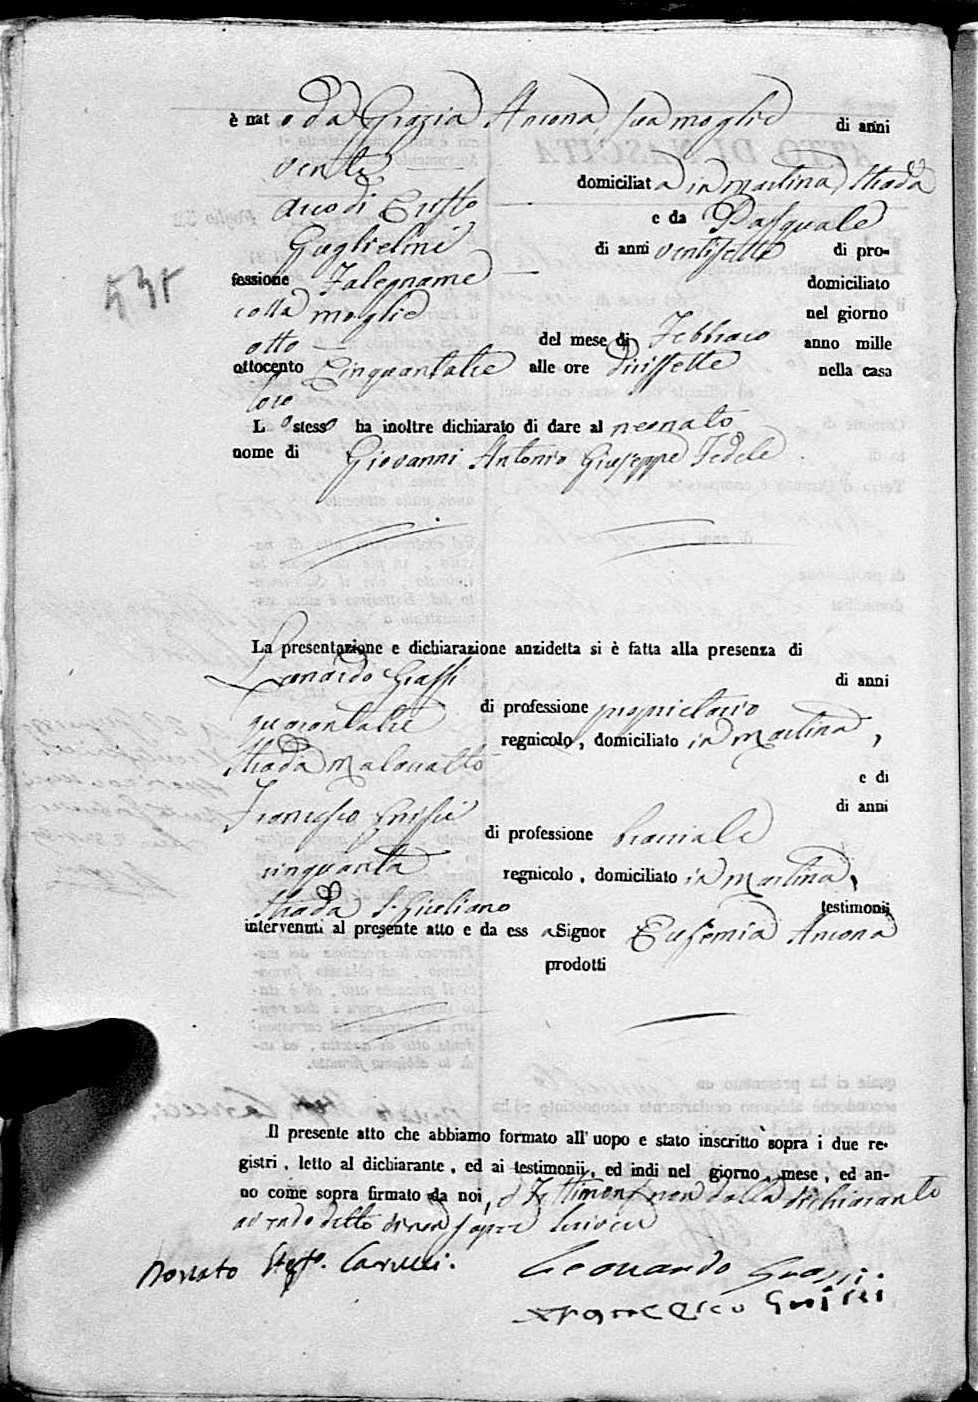 è nato da Grazia Ancona, sua moglie di anni
venti domiciliata in Martina Strada
Arco di Cristo e da Pasquale
Guglielmi di anni ventisette di pro-
fessione Falegname domiciliato
colla moglie nel giorno
otto del mese di Febbraio anno mille
ottocento Cinquantatre alle ore dicissette nella casa
loro
Lo stesso ha inoltre dichiarato di dare al neonato
nome di Giovanni Antonio Giuseppe Fedele
La presentazione e dichiarazione anzidetta si è fatta alla presenza di
Leonardo Grassi di anni
quarantatre di professione proprietario
regnicolo, domiciliato in Martina,
Strada e di
Francesco di anni
cinquanta di professione bracciale
regnicolo, domiciliato in Martina,
Strada S. Giuliano testimonii
intervenuti al presente atto e da essa Signor Eufemia Ancona
prodotti
Il presente atto che abbiamo formato all' uopo e stato inscritto sopra i due re-
gistri, letto al dichiarante, ed ai testimonii, ed indi nel giorno, mese, ed an-
no come sopra firmato da noi, e Testimonj non dalla dichiarante
avendo detto di non sapere scrivere
Donato Carucci.
Leonardo Grassi.
Francesco